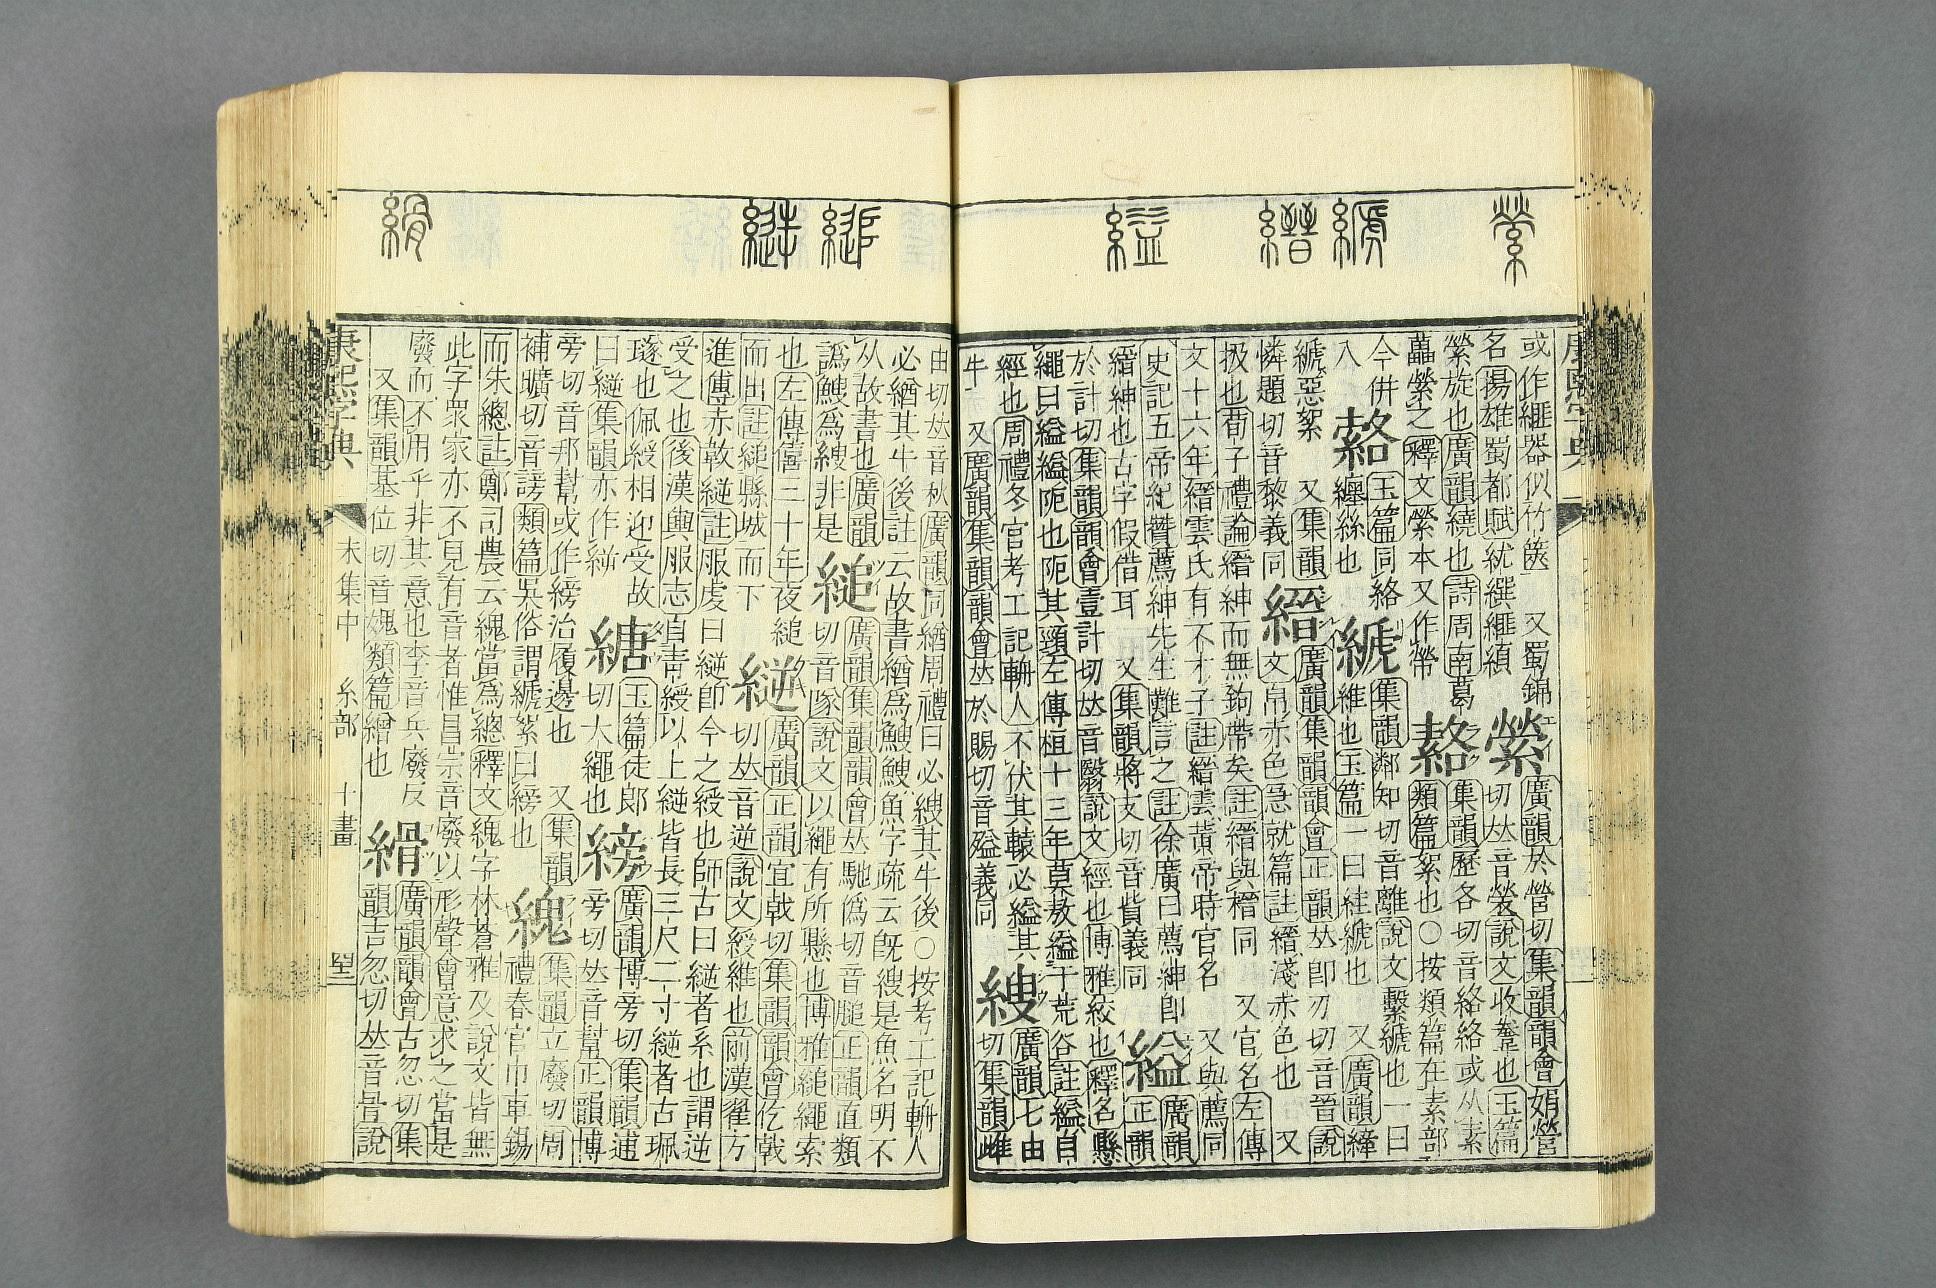 縈
縉
縊
或作䋿器似竹篋 又蜀錦 廣韻於營切集韻韻會娟營
名揚雄蜀都賦紌繏䋿縝 縈 切𠀤音褮說文收韏也玉篇
縈旋也廣韻繞也詩周南葛 集韻歷各切音絡絡或从素
藟縈之釋文縈本又作帶 類篇絮也○按類篇在素部
今併 玉篇同絡 集韻鄰知切音離說文繫也一曰
入 纏絲也 維也玉篇一曰絓也 又廣韻繂
惡絮 又集韻 廣韻集韻韻會正韻𠀤卽刃切音晉說
憐題切音黎義同 縉 文帛赤色急就篇註縉淺赤色也 又
扱也荀子禮論縉紳而無鉤帶矣註縉與搢同 又官名左傳
文十六年縉雲氏有不才子註縉雲黃帝時官名 又與薦同
史記五帝紀贊薦紳先生難言之註徐廣曰薦紳卽 廣韻
縉紳也古字假借耳 又集韻將支切音貲義同 縊 正韻
於計切集韻韻會壹計切𠀤音翳說文經也博雅絞也釋名懸
繩曰縊縊阨也阨其頸左傳桓十三年莫敖縊于荒谷註縊自
經也周禮冬官考工記輈人不伏其轅必縊其 廣韻七由
牛 又廣韻集韻韻會𠀤於賜切音縊義同 緮 切集韻雌
縋
縌
縎
由切𠀤音秋廣韻同緧周禮曰必緮其牛後○按考工記輈人
必緧其牛後註云故書緧爲鰒鰒魚字疏云旣緮是魚名明不
从故書也廣韻 廣韻集韻韻會𠀤馳僞切音膇正韻直類
譌鰒爲緮非是 縋 切音墜說文以繩有所懸也博雅縋繩索
也左傳僖三十年夜縋 廣韻正韻宜戟切集韻韻會仡戟
而出註縋縣城而下 縌 切𠀤音逆說文綬維也前漢翟方
進傳赤韍縌註服虔曰縌卽今之綬也師古曰縌者系也謂逆
受之也後漢輿服志自靑綬以上縌皆長三尺二寸縌者古珮
璲也佩綬相迎受故 玉篇徒郞 廣韻博旁切集韻逋
曰縌集韻亦作䋤 䌅 切大繩也 縍 旁切𠀤音幫正韻博
旁切音邦幫或作縍治履邊也 又集韻 集韻立廢切周
補曠切音謗類篇吳俗謂絮曰縍也 禮春官巾車錫
而朱總註鄭司農云當爲總釋文字林蒼雅及說文皆無
此字衆家亦不見有音者惟昌宗音廢以形聲會意求之當是
廢而不用乎非其意也李音兵廢反 廣韻韻會古忽切集
又集韻基位切音媿類篇繒也 縎 韻吉忽切𠀤音骨說
康熙字典 未集中 糸部 十畫